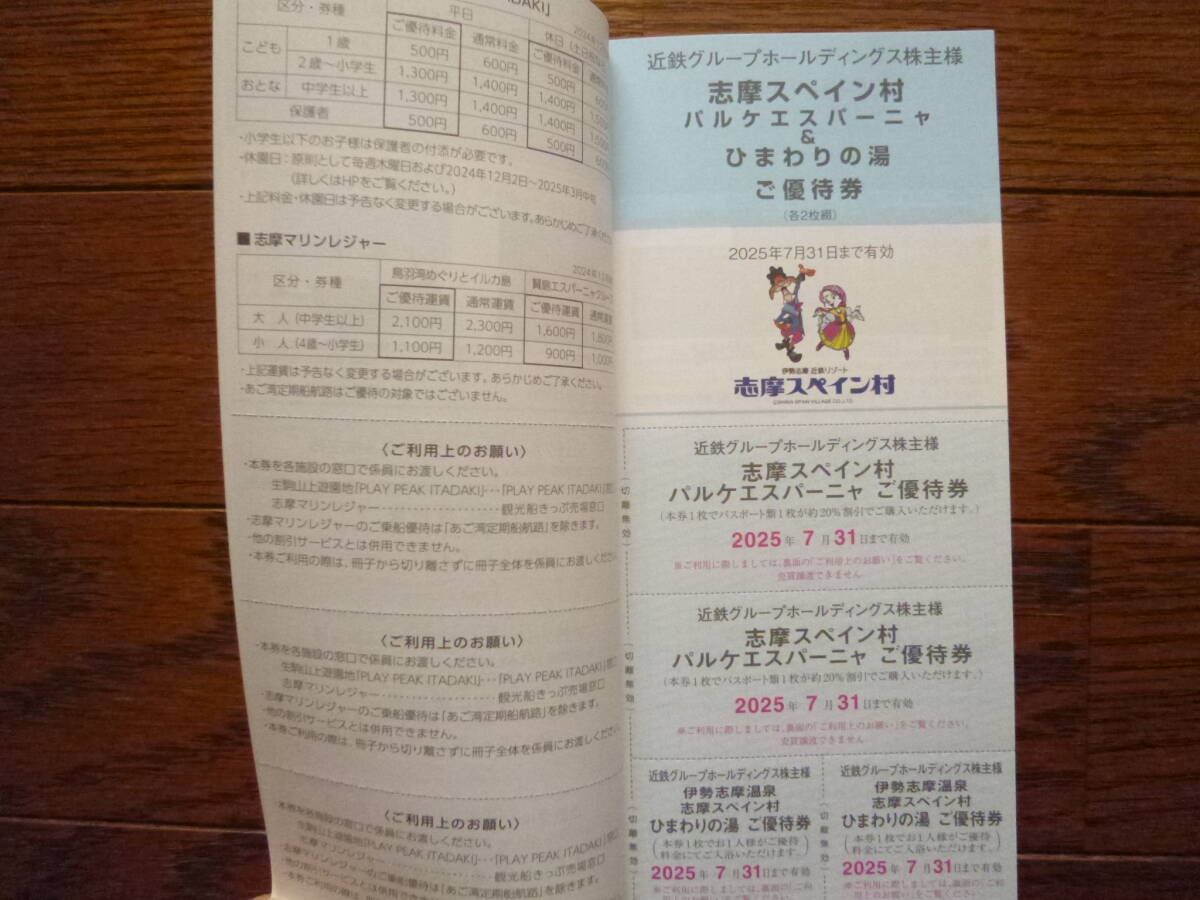 ADAKI」
区分・券種
平日
2024年1
休日（土日祝
ご優待料金
通常料金
ご優待料金
通常
こども
1歳
500円
600円
500円
600
2歳～小学生
1,300円
1,400円
1,400円
1,500
おとな
中学生以上
1,300円
1,400円
1,400円
1,500
保護者
500円
600円
500円
600
・小学生以下のお子様は保護者の付添が必要です。
・休園日：原則として毎週木曜日および2024年12月2日～2025年3月中旬
（詳しくはHPをご覧ください。）
・上記料金・休園日は予告なく変更する場合がございます。あらかじめご了承くださ
■ 志摩マリンレジャー
2024年12月
区分・券種
鳥羽湾めぐりとイルカ島
賢島エスパーニャクルーズ
ご優待運賃
通常運賃
ご優待運賃
通常運賃
大 人（中学生以上）
2,100円
2,300円
1,600円
1,800
小 人（4歳～小学生）
1,100円
1,200円
900円
1,000
・上記運賃は予告なく変更する場合がございます。あらかじめご了承ください。
・あご湾定期船航路はご優待の対象ではございません。
〈ご利用上のお願い〉
・本券を各施設の窓口で係員にお渡しください。
生駒山上遊園地「PLAY PEAK ITADAKI」…「PLAY PEAK ITADAKI」窓口
志摩マリンレジャー……………………観光船きっぷ売場窓口
・志摩マリンレジャーのご乗船優待は「あご湾定期船航路」を除きます。
・他の割引サービスとは併用できません。
・本券ご利用の際は、冊子から切り離さずに冊子全体を係員にお渡しください。
〈ご利用上のお願い〉
・本券を各施設の窓口で係員にお渡しください。
生駒山上遊園地「PLAY PEAK ITADAKI」…「PLAY PEAK ITADAKI」窓口
志摩マリンレジャー……………………観光船きっぷ売場窓口
・志摩マリンレジャーのご乗船優待は「あご湾定期船航路」を除きます。
・他の割引サービスとは併用できません。
・本券ご利用の際は、冊子から切り離さずに冊子全体を係員にお渡しください。
〈ご利用上のお願い〉
・本券を各施設の窓口で係員にお渡しください。
生駒山上遊園地「PLAY PEAK ITADAKI」…「PLAY PEAK ITADAKI」窓口
志摩マリンレジャー……………………観光船きっぷ売場窓口
・志摩マリンレジャーのご乗船優待は「あご湾定期船航路」を除きます。
・他の割引サービスとは併用できません。
・本券ご利用の際は、冊子から切り離さずに冊子全体を係員にお渡し
近鉄グループホールディングス株主様
志摩スペイン村
パルケエスパーニャ
&
ひまわりの湯
ご優待券
（各2枚綴）
2025年7月31日まで有効
伊勢志摩 近鉄リゾート
志摩スペイン村
©SHIMA SPAIN VILLAGE CO.,LTD.
近鉄グループホールディングス株主様
志摩スペイン村
パルケエスパーニャ ご優待券
（本券1枚でパスポート類1枚が約20%割引でご購入いただけます。）
2025年 7月31日まで有効
※ご利用に際しましては、裏面の「ご利用上のお願い」をご覧ください。
売買譲渡できません
（切離無効）
近鉄グループホールディングス株主様
志摩スペイン村
パルケエスパーニャ ご優待券
（本券1枚でパスポート類1枚が約20%割引でご購入いただけます。）
2025年 7月31日まで有効
※ご利用に際しましては、裏面の「ご利用上のお願い」をご覧ください。
売買譲渡できません
（切離無効）
近鉄グループホールディングス株主様
伊勢志摩温泉
志摩スペイン村
ひまわりの湯 ご優待券
（本券1枚でお1人様がご優待
料金にてご入浴いただけます。）
2025年 7月31日まで有効
※ご利用に際しましては、裏面の「ご利
用上のお願い」をご覧ください。
（切離無効）
近鉄グループホールディングス株主様
伊勢志摩温泉
志摩スペイン村
ひまわりの湯 ご優待券
（本券1枚でお1人様がご優待
料金にてご入浴いただけます。）
2025年 7月31日まで有効
※ご利用に際しましては、裏面の「ご利
用上のお願い」をご覧ください。
（切離無効）